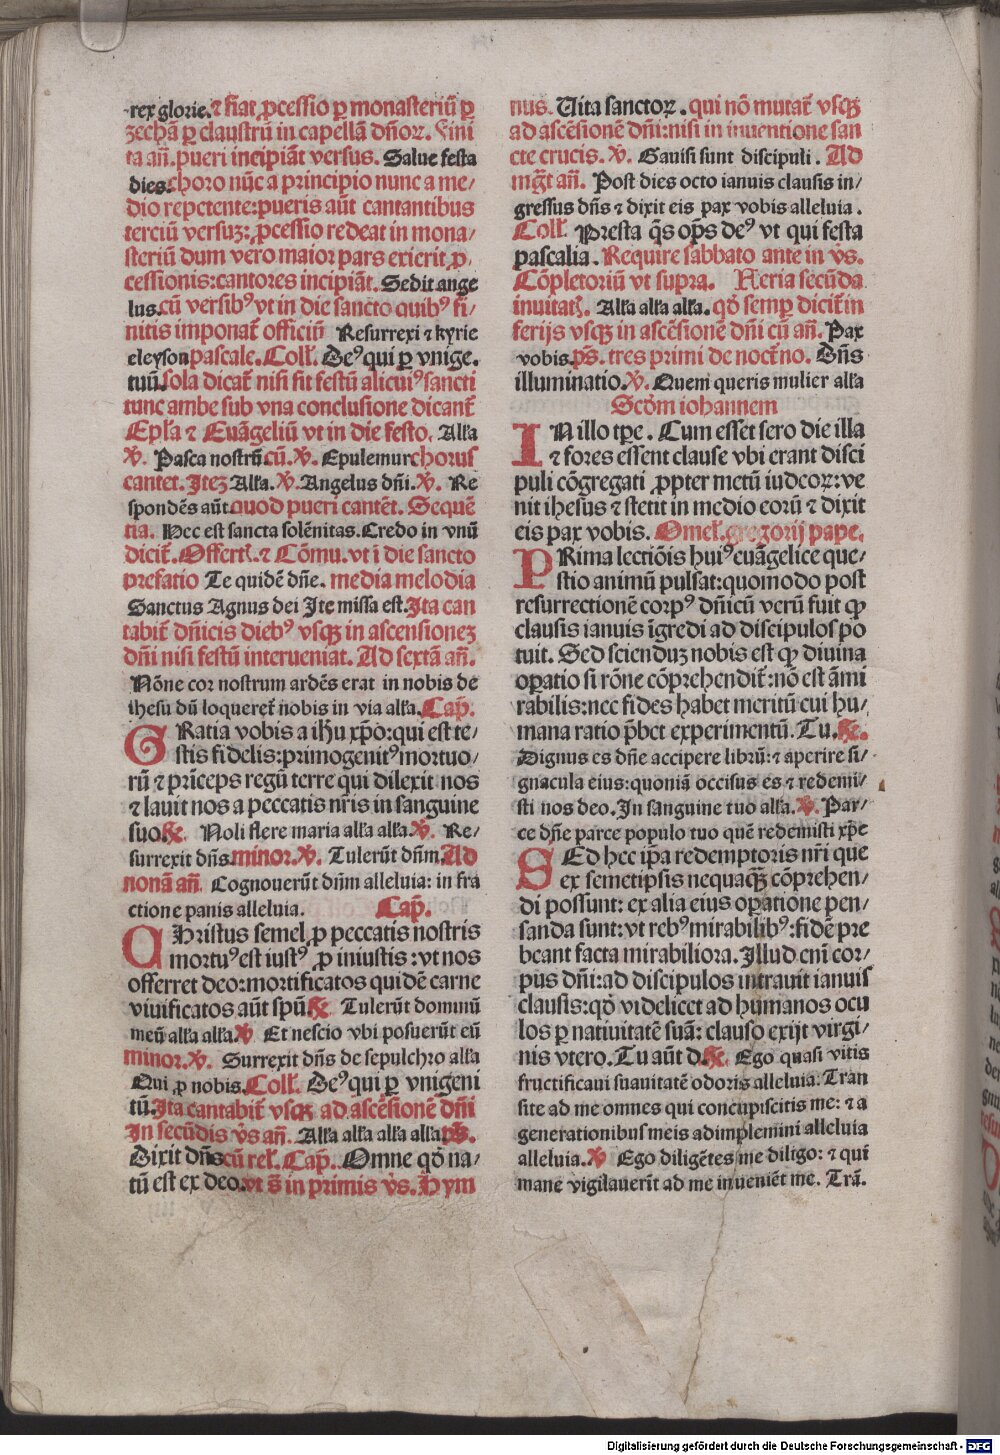 rex glorie. ⁊ fiat ꝓcessio ꝑ monasteriū ꝑ
zechā ꝑ claustrū in capellā dn̄oꝝ. Fini
ta an̄. pueri incipiāt versus. Salue festa
dies. choro nūc a principio nunc a me/
dio repetente: pueris aūt cantantibus
terciū versuꝫ: ꝓcessio redeat in mona/
steriū dum vero maior pars exierit ꝓ
cessionis: cantores incipiāt. Sedit ange
lus. cū versibꝰ vt in die sancto quibꝰ fi/
nitis imponat̄ officiū Resurrexi ⁊ kyrie
eleyson pascale. Coll̄. Deꝰ qui ꝑ vnige.
tuū. sola dicat̄ nisi sit festū alicuiꝰ sancti
tunc ambe sub vna conclusione dicant̄
Epl̄a ⁊ Euāgeliū vt in die festo. Alła
℣. Pasca nostrū cū. ℣. Epulemur chorus
cantet. Iteꝫ Alła. ℣. Angelus dn̄i. ℣. Re
spondēs aūt. quod pueri cantēt. Sequē
tia. Hec est sancta solēnitas. Credo in vnū
dicit̄. Offert̄. ⁊ Cōmu. vt ī die sancto
prefatio Te quidē dn̄e. media melodia
Sanctus Agnus dei Ite missa est. Ita can
tabit̄ dn̄icis diebꝰ vsqꝫ in ascensioneꝫ
dn̄i nisi festū interueniat. Ad sextā an̄.
Nōne cor nostrum ardēs erat in nobis de
ihesu dū loqueret̄ nobis in via alła. Cap̄.
GRatia vobis a ih̄u xp̄o: qui est te/
stis fidelis: primogenitꝰ mortuo/
rū ⁊ prīceps regū terre qui dilexit nos
⁊ lauit nos a peccatis nr̄is in sanguine
suo. ℟. Noli flere maria alła alła. ℣. Re/
surrexit dn̄s. minor. ℣. Tulerūt dn̄m. Ad
nonā an̄. Cognouerūt dn̄m alleluia: in fra
ctione panis alleluia. Cap̄.
CHristus semel ꝓ peccatis nostris
mortuꝰ est iustꝰ ꝓ iniustis: vt nos
offerret deo: mortificatos quidē carne
viuificatos aūt spū. ℟. Tulerūt dominū
meū alła alła. ℣. Et nescio vbi posuerūt eū
minor. ℣. Surrexit dn̄s de sepulchro alła
Qui ꝓ nobis. Coll̄. Deꝰ qui ꝑ vnigeni
tū. Ita cantabit̄ vsqꝫ ad ascēsionē dn̄i
In secūdis v̄s an̄. Alła alła alła alła. ps̄.
Dixit dn̄s cū rel̄. Cap̄. Omne qd̄ na/
tū est ex deo. vt s̄ in primis v̄s. Hym
nus. Uita sanctoꝝ. qui nō mutat̄ vsqꝫ
ad ascēsionē dn̄i: nisi in inuentione san
cte crucis. ℣. Gauisi sunt discipuli. Ad
mḡt an̄. Post dies octo ianuis clausis in/
gressus dn̄s ⁊ dixit eis pax vobis alleluia.
Coll̄. Presta q̄s op̄s deꝰ vt qui festa
pascalia. Require sabbato ante in v̄s.
Cōpletoriū vt supra. Feria secūda
inuitat̄. Alła alła alła. qd̄ semꝑ dicit̄ in
ferijs vsqꝫ in ascēsionē dn̄i cū an̄. Pax
vobis. ps̄. tres primi de noct̄no. Dn̄s
illuminatio. ℣. Quem queris mulier alła
Scd̄m iohannem
IN illo tp̄e. Cum esset sero die illa
⁊ fores essent clause vbi erant disci
puli cōgregati ꝓpter metū iudeoꝝ: ve
nit ihesus ⁊ stetit in medio eorū ⁊ dixit
eis pax vobis. Omel̄. gregorij pape.
PRima lectiōis huiꝰ euāgelice que/
stio animū pulsat: quomodo post
resurrectionē corpꝰ dn̄icū verū fuit qꝫ
clausis ianuis īgredi ad discipulos po
tuit. Sed scienduꝫ nobis est qꝫ diuina
oꝑatio si rōne cōprehendit̄: nō est āmi
rabilis: nec fides habet meritū cui hu/
mana ratio p̄bet experimentū. Tu. ℟.
Dignus es dn̄e accipere librū: ⁊ aperire si/
gnacula eius: quoniā occisus es ⁊ redemi/
sti nos deo. In sanguine tuo alła. ℣. Par/
ce dn̄e parce populo tuo quē redemisti xp̄e
SEd hec ip̄a redemptoris nr̄i que
ex semetipsis nequaqꝫ cōprehen/
di possunt: ex alia eius oꝑatione pen/
sanda sunt: vt rebꝰ mirabilibꝰ: fidē pre
beant facta mirabiliora. Illud em̄ cor/
pus dn̄i: ad discipulos intrauit ianuis
clausis: qd̄ videlicet ad humanos ocu
los ꝑ natiuitatē suā: clauso exijt virgi/
nis vtero. Tu aūt d. ℟. Ego quasi vitis
fructificaui suauitatē odoris alleluia. Tran
site ad me omnes qui concupiscitis me: ⁊ a
generationibus meis adimplemini alleluia
alleluia. ℣. Ego diligētes me diligo: ⁊ qui
mane vigilauerūt ad me inueniēt me. Trā.
Digitalisierung gefördert durch die Deutsche Forschungsgemeinschaft - DFG